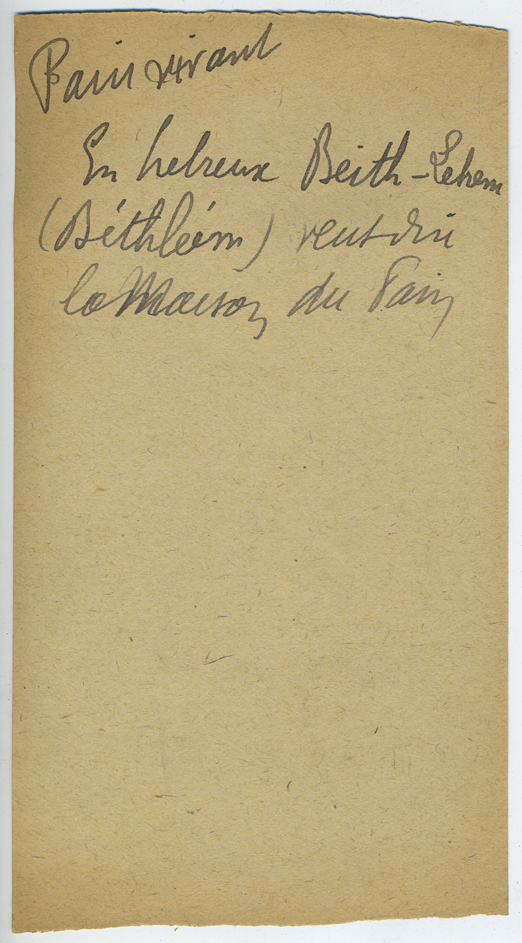 Pain vivant
En hebreux Beith-Lehem
(Béthléem) veut dire
la Maison du Pain